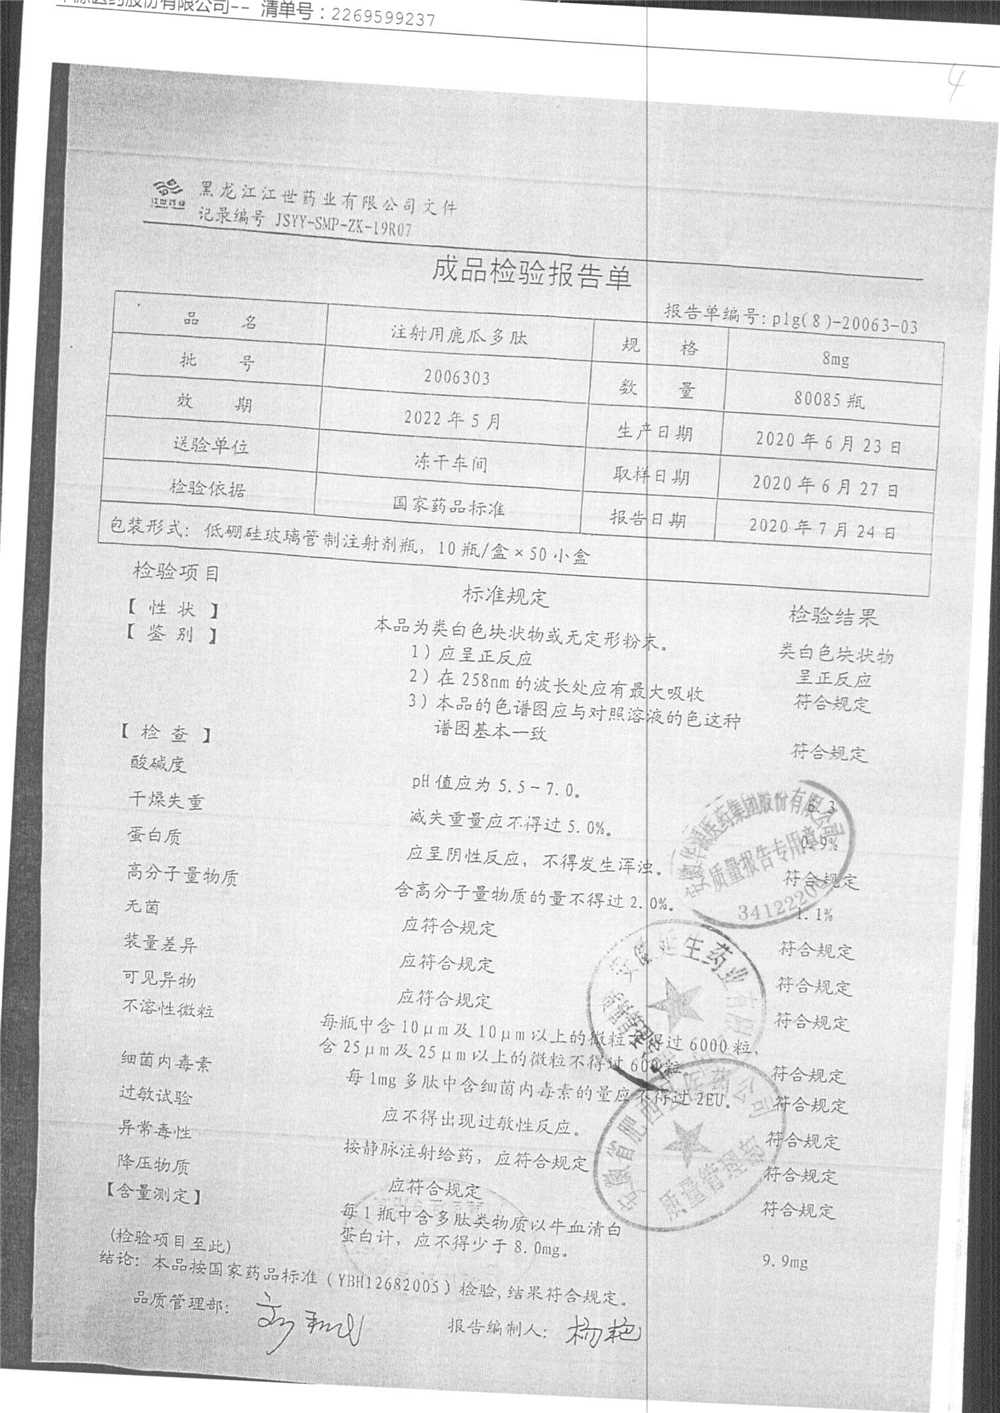 医药股份有限公司-- 清单号：2269599237
4
江世药业
黑龙江江世药业有限公司文件
记录编号 JSYY-SMP-ZK-19R07
成品检验报告单
报告单编号：plg(8)-20063-03
品 名 注射用鹿瓜多肽 规 格 8mg
批 号 2006303 数 量 80085 瓶
效 期 2022 年 5 月 生产日期 2020 年 6 月 23 日
送验单位 冻干车间 取样日期 2020 年 6 月 27 日
检验依据 国家药品标准 报告日期 2020 年 7 月 24 日
包装形式：低硼硅玻璃管制注射剂瓶，10 瓶/盒×50 小盒
检验项目 标准规定 检验结果
【 性 状 】 本品为类白色块状物或无定形粉末。 类白色块状物
【 鉴 别 】 1）应呈正反应 呈正反应
2）在 258nm 的波长处应有最大吸收 符合规定
3）本品的色谱图应与对照溶液的色这种
谱图基本一致 符合规定
【 检 查 】
酸碱度 pH 值应为 5.5～7.0。 6.3
干燥失重 减失重量应不得过 5.0%。 0.9%
蛋白质 应呈阴性反应，不得发生浑浊。 符合规定
高分子量物质 含高分子量物质的量不得过 2.0%。 1.1%
无菌 应符合规定 符合规定
装量差异 应符合规定 符合规定
可见异物 应符合规定 符合规定
不溶性微粒 每瓶中含 10μm 及 10μm 以上的微粒不得过 6000 粒，
含 25μm 及 25μm 以上的微粒不得过 600 粒 符合规定
细菌内毒素 每 1mg 多肽中含细菌内毒素的量应不得过 2EU。 符合规定
过敏试验 应不得出现过敏性反应。 符合规定
异常毒性 按静脉注射给药，应符合规定 符合规定
降压物质 应符合规定 符合规定
【含量测定】 每 1 瓶中含多肽类物质以牛血清白
蛋白计，应不得少于 8.0mg。 9.9mg
(检验项目至此)
结论：本品按国家药品标准（YBH12682005）检验，结果符合规定。
品质管理部： 报告编制人：杨艳
华源医药集团股份有限公司
质量报告专用章
34122200
生药业有限
安徽省肥西
质量管理部